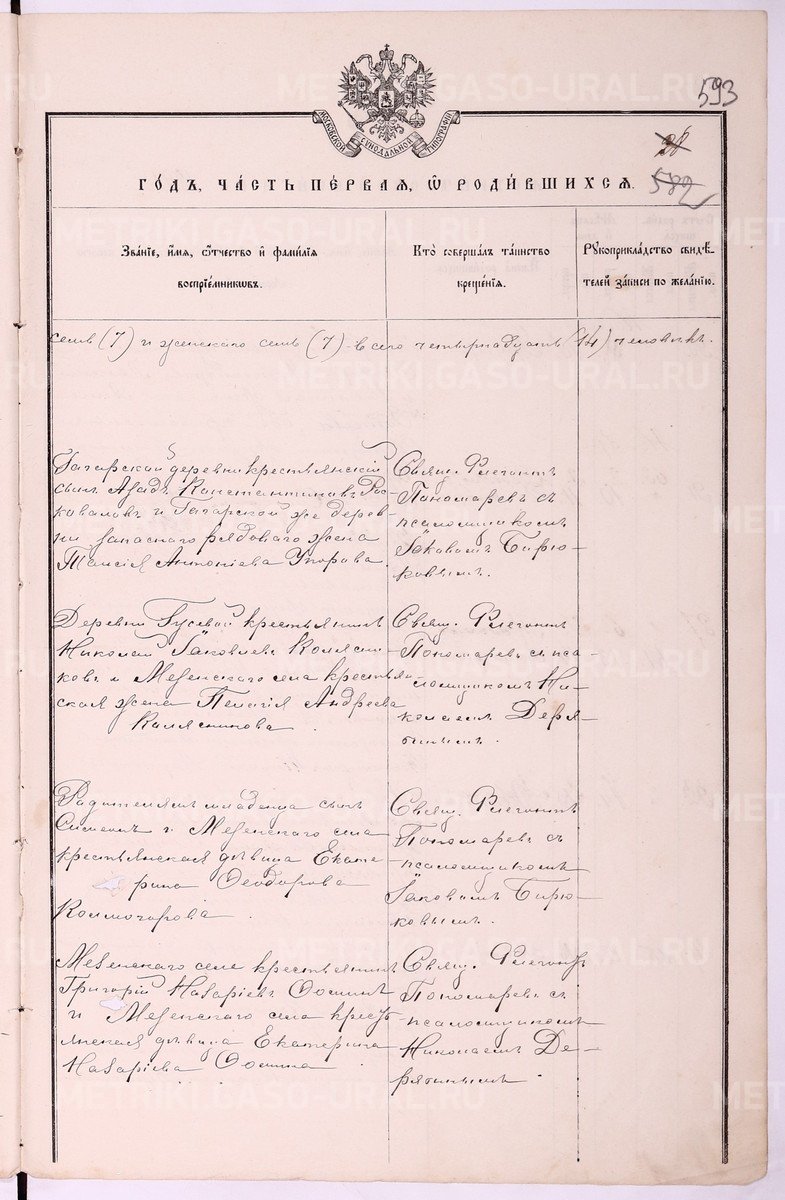 593
МОСКОВСКОЙ СѴНОДАЛЬНОЙ ТИПОГРАФІИ
28
582
ГО́ДЪ, ЧА́СТЬ ПЕ́РВАЯ, Ѡ҆ РОДИ́ВШИХСЯ.
Зва́нїе, и҆́мя, ѻ҆́тчество и҆ фами́лїя
воспрїе́мникѡвъ.
Кто̀ соверша́лъ та́инство
креще́нїя.
Рꙋкоприкла́дство свидѣ́-
телей за́писи по жела́нїю.
семь (7) и женскаго семь (7) - всего четырнадцать (14) человѣкъ.
Гагарской деревни крестьянскій
сынъ Константиновъ
и Гагарской же дерев-
ни запаснаго рядоваго жена
Таисія Антоніева Упорова.
Свящ. Флегонтъ
Пономаревъ съ
псаломщикомъ
Іаковомъ Бирю-
ковымъ.
Деревни Гусевой крестьянинъ
Николай Іаковлевъ Колясни-
ковъ и Мезенскаго села крестья-
нская жена Пелагія Андреева
Колясникова.
Свящ. Флегонтъ
Пономаревъ съ пса-
ломщикомъ Ни-
колаемъ Деря-
бинымъ.
Родителямъ младенца сынъ
Симеонъ и Мезенскаго села
крестьянская дѣвица Екате-
рина Ѳеодорова
Колмогорова.
Свящ. Флегонтъ
Пономаревъ съ
псаломщикомъ
Іаковомъ Бирю-
ковымъ.
Мезенскаго села крестьянинъ
Григорій Назаріевъ Ѳоминъ
и Мезенскаго села кресть-
янская дѣвица Екатерина
Назаріева Ѳомина.
Свящ. Флегонтъ
Пономаревъ съ
псаломщикомъ
Николаемъ Де-
рябинымъ.
METRIKI.GASO-URAL.RU